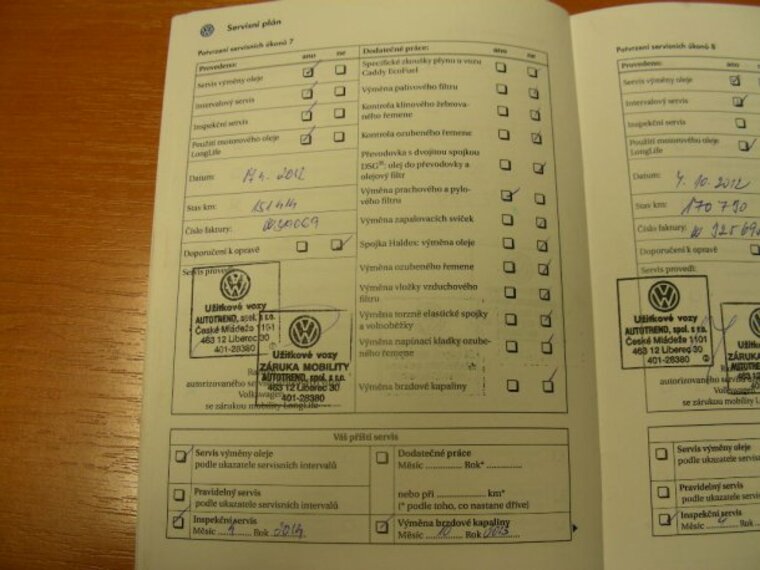 Servisní plán
Potvrzení servisních úkonů 7
Provedeno: ano ne
Servis výměny oleje
Intervalový servis
Inspekční servis
Použití motorového oleje
LongLife
Datum: 17.4. 2012
Stav km: 151414
Číslo faktury:
Doporučení k opravě
Servis provedl:
Užitkové vozy
AUTOTREND, spol. s r.o.
České Mládeže 1101
463 12 Liberec 30
401-28380
Užitkové vozy
ZÁRUKA MOBILITY
AUTOTREND, spol. s r.o.
463 12 Liberec 30
401-28380
autorizovaného
Volkswagen
se zárukou mobility LongLife
Dodatečné práce: ano ne
Specifické zkoušky plynu u vozu
Caddy EcoFuel
Výměna palivového filtru
Kontrola klínového žebrova-
ného řemene
Kontrola ozubeného řemene
Převodovka s dvojitou spojkou
DSG®: olej do převodovky a
olejový filtr
Výměna prachového a pylo-
vého filtru
Výměna zapalovacích svíček
Spojka Haldex: výměna oleje
Výměna ozubeného řemene
Výměna vložky vzduchového
filtru
Výměna torzně elastické spojky
a volnoběžky
Výměna napínací kladky ozube-
ného řemene
Výměna brzdové kapaliny
Váš příští servis
Servis výměny oleje
podle ukazatele servisních intervalů
Pravidelný servis
podle ukazatele servisních intervalů
Inspekční servis
Měsíc 4 Rok 2014
Dodatečné práce
Měsíc ............ Rok* ............
nebo při ............ km*
(* podle toho, co nastane dříve)
Výměna brzdové kapaliny
Měsíc 10 Rok 2013
Potvrzení servisních úkonů 8
Provedeno: ano
Servis výměny oleje
Intervalový servis
Inspekční servis
Použití motorového oleje
LongLife
Datum: 4. 10. 2012
Stav km: 170790
Číslo faktury:
Doporučení k opravě
Servis provedl:
Užitkové vozy
AUTOTREND, spol. s r.o.
České Mládeže 1101
463 12 Liberec 30
401-28380
autorizovaného
Volkswagen
se zárukou mobility
Servis výměny oleje
podle ukazatele
Pravidelný servis
podle ukazatele
Inspekční servis
Měsíc 4